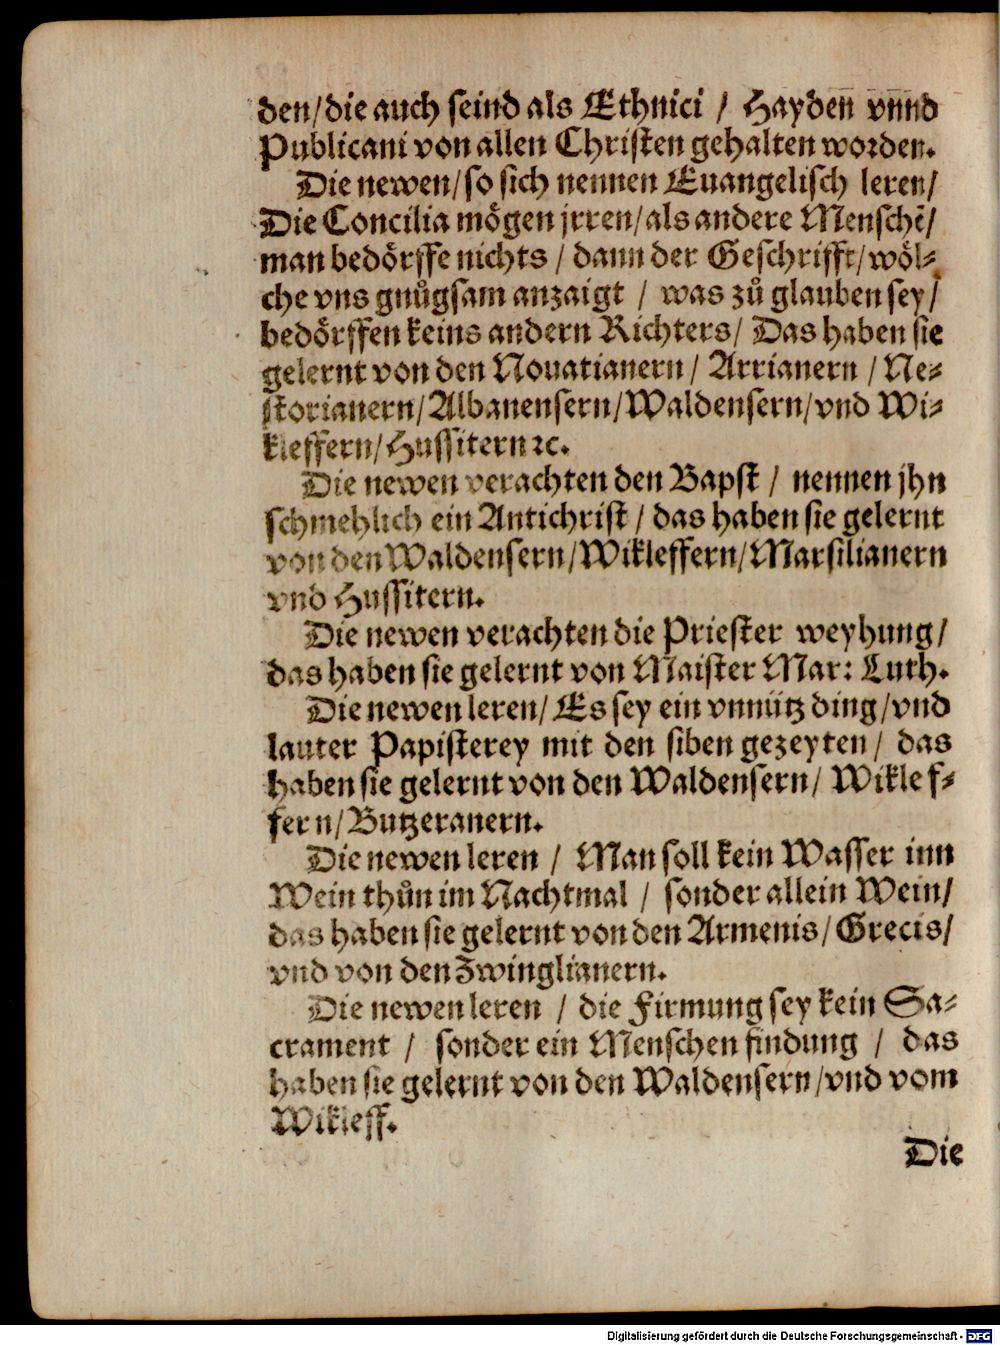 den/die auch seind als Ethnici / Hayden vnnd
Publicani von allen Christen gehalten worden.
Die newen/so sich nennen Euangelisch leren/
Die Concilia mögen jrren/als andere Menschẽ/
man bedörffe nichts / dann der Geschrifft/wöl-
che vns gnůgsam anzaigt / was zů glauben sey/
bedörffen keins andern Richters/ Das haben sie
gelernt von den Nouatianern/ Arrianern / Ne-
storianern/Albanensern/Waldensern/vnd Wi-
kleffern/Hussitern ꝛc.
Die newen verachten den Bapst / nennen jhn
schmehlich ein Antichrist / das haben sie gelernt
von den Waldensern/Wikleffern/Marsilianern
vnd Hussitern.
Die newen verachten die Priester weyhung/
das haben sie gelernt von Maister Mar: Luth.
Die newen leren/ Es sey ein vnnütz ding/vnd
lauter Papisterey mit den siben gezeyten/ das
haben sie gelernt von den Waldensern/ Wiklef-
fern/Butzeranern.
Die newen leren / Man soll kein Wasser inn
Wein thůn im Nachtmal / sonder allein Wein/
das haben sie gelernt von den Armenis/Grecis/
vnd von den Zwinglianern.
Die newen leren / die Firmung sey kein Sa-
crament / sonder ein Menschen findung / das
haben sie gelernt von den Waldensern/vnd vom
Wikleff.
Die
Digitalisierung gefördert durch die Deutsche Forschungsgemeinschaft - DFG